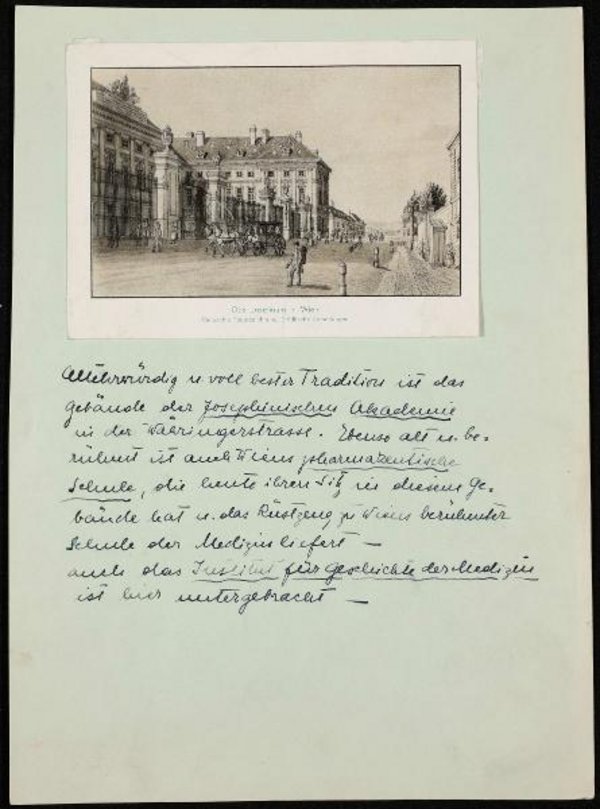 Das Josephinum in Wien
Altehrwürdig u voll bester Tradition ist das
Gebäude der Josephinischen Akademie
in der Währingerstrasse. Ebenso alt u. be-
rühmt ist auch Wiens pharmazeutische
Schule, die heute ihren Sitz in diesem Ge-
bäude hat u. das Rüstzeug zu Wiens berühmter
Schule der Medizin liefert —
auch das Institut für Geschichte der Medizin
ist hier untergebracht —